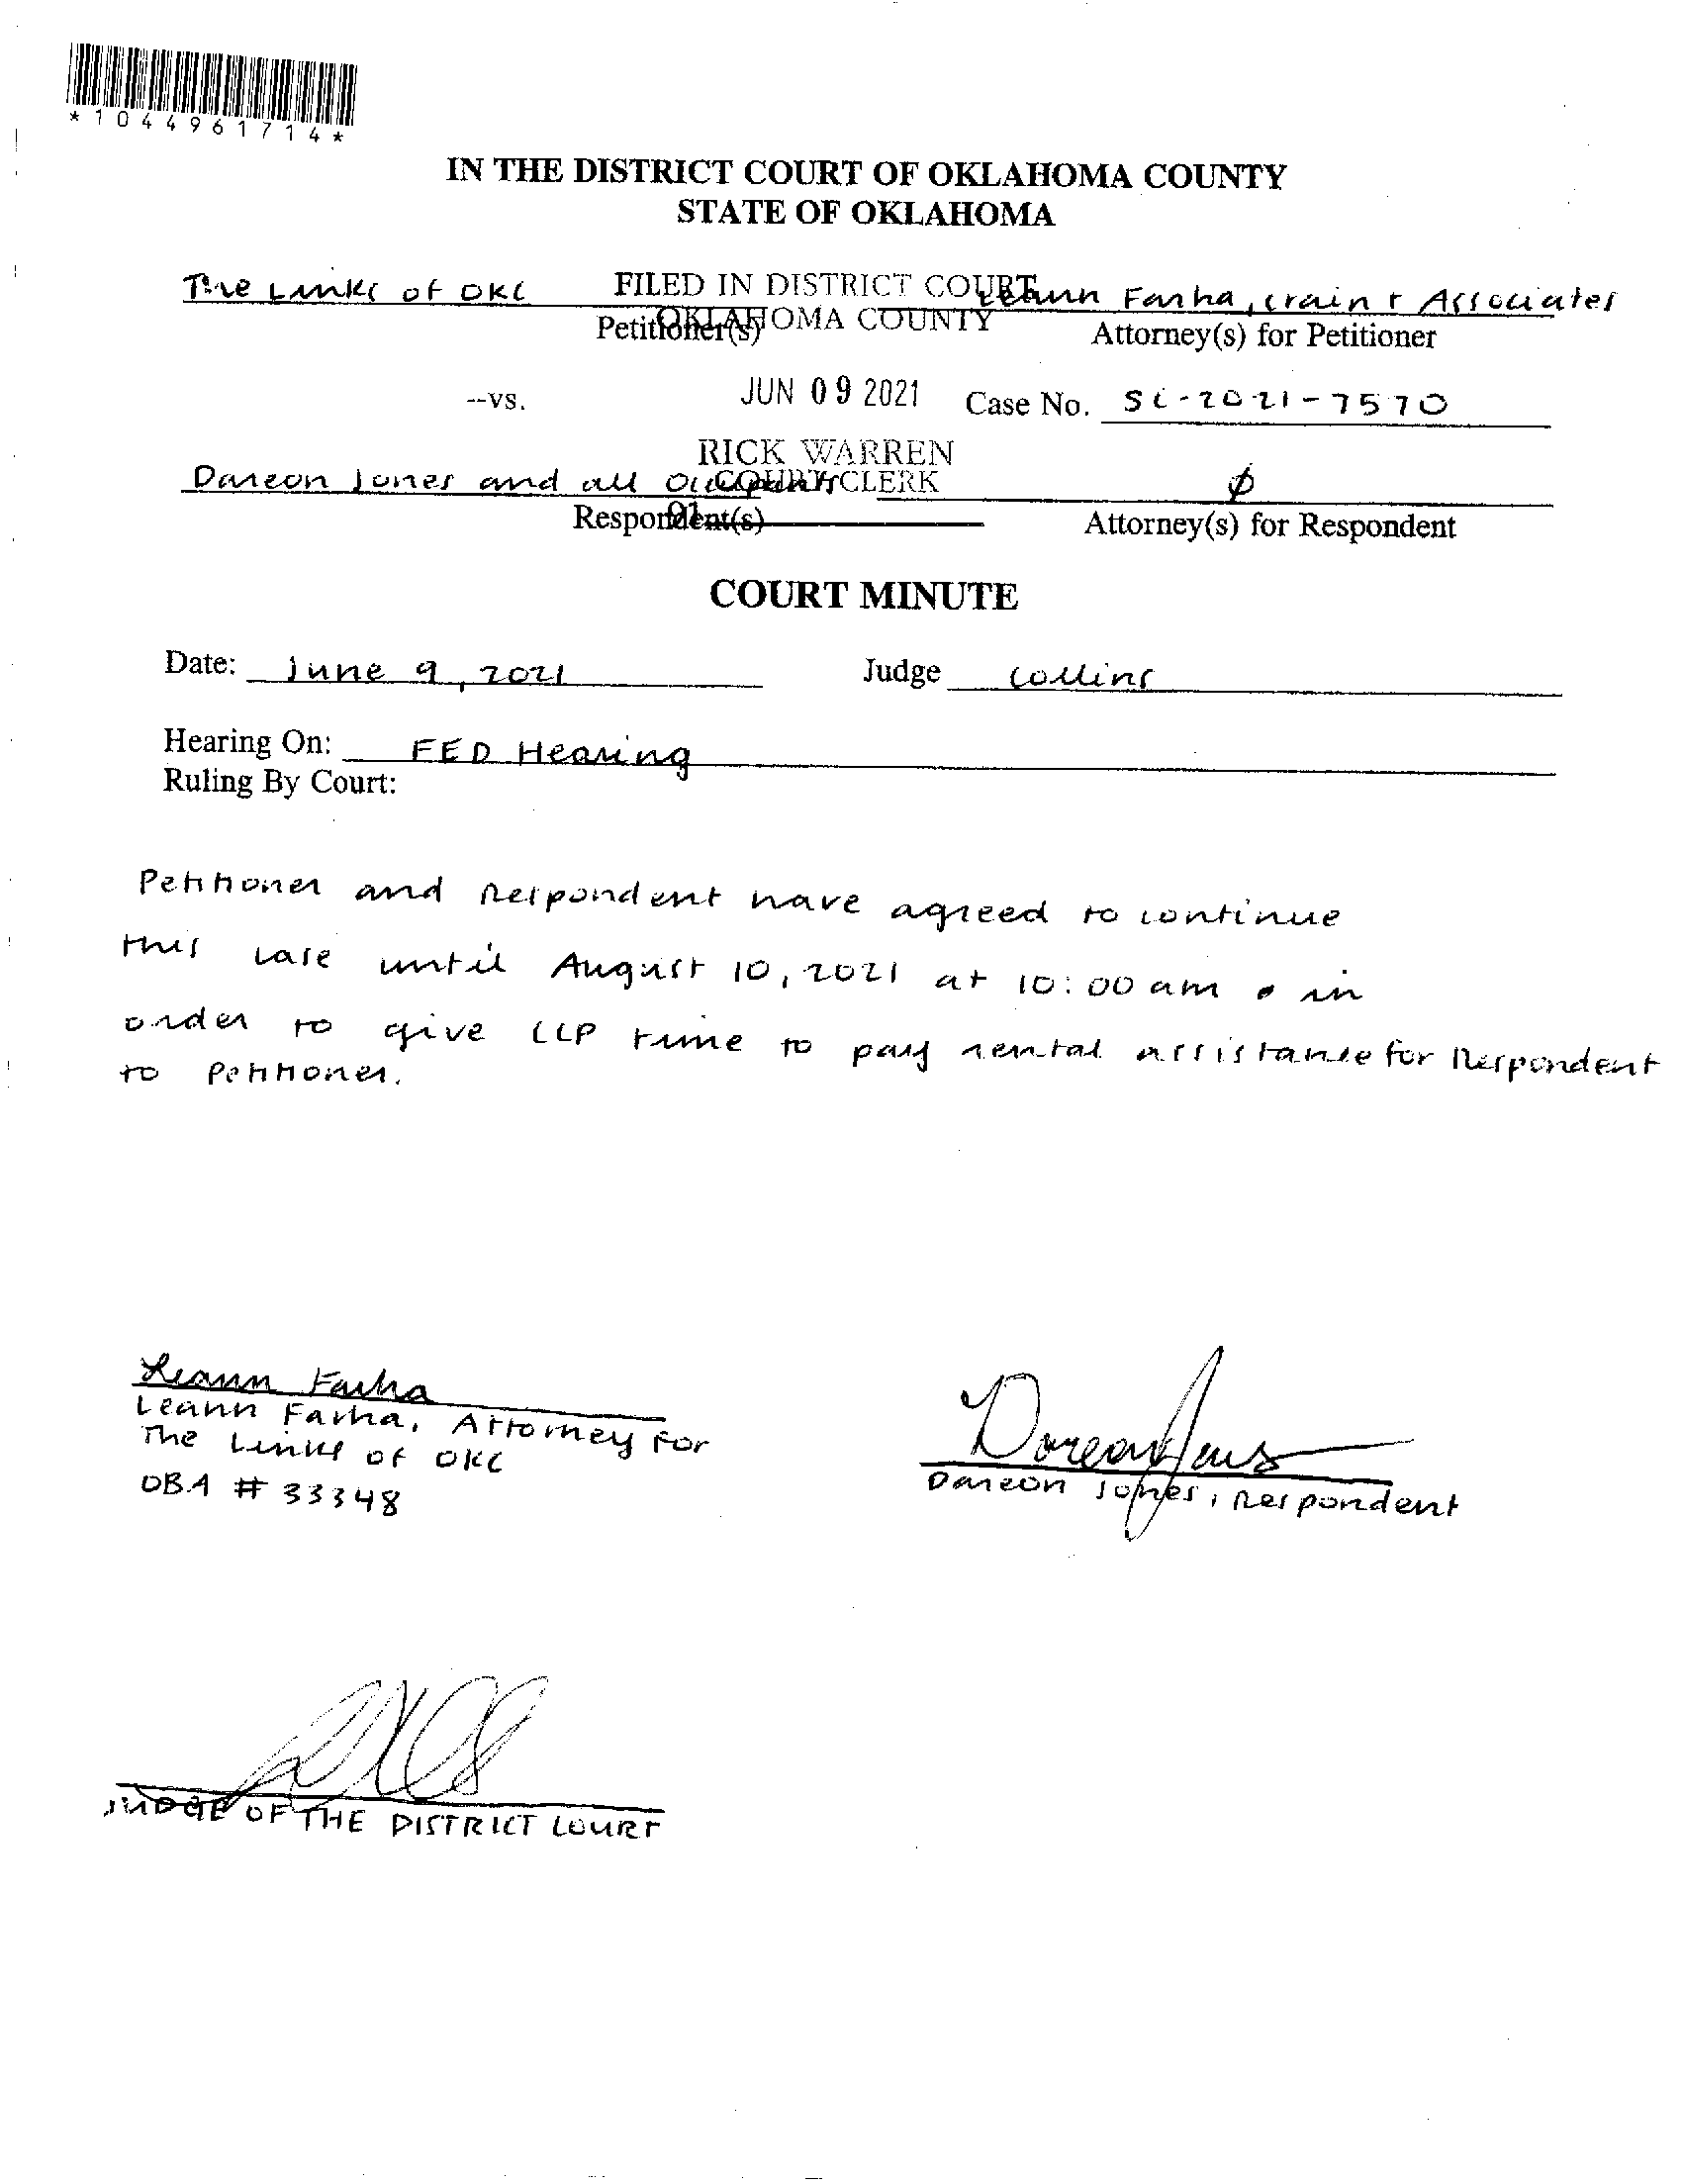 *1044961714*
IN THE DISTRICT COURT OF OKLAHOMA COUNTY
STATE OF OKLAHOMA
The Links of OKC
FILED IN DISTRICT COURT
Leann Farha, Crain + Associates
Petitioner(s)
OKLAHOMA COUNTY
Attorney(s) for Petitioner
--vs.
JUN 09 2021
Case No. SC-2021-7570
RICK WARREN
COURT CLERK
Dareon Jones and all Occupants
ø
Respondent(s)
Attorney(s) for Respondent
COURT MINUTE
Date: June 9, 2021 Judge Collins
Hearing On: FED Hearing
Ruling By Court:
Petitioner and Respondent have agreed to continue
this case until August 10, 2021 at 10:00 am in
order to give CCP time to pay rental assistance for Respondent
to Petitioner.
Leann Farha
Leann Farha, Attorney for
The Links of OKC
OBA # 33348
Dareon Jones
Dareon Jones, Respondent
JUDGE OF THE DISTRICT COURT